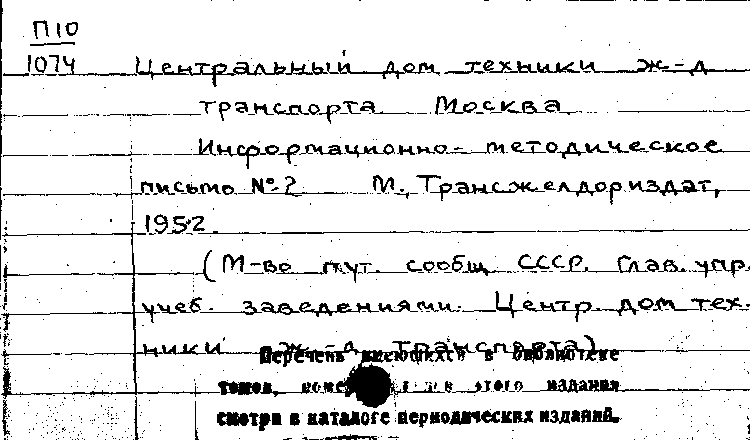 П10
1074
Центральный дом техники ж-д
транспорта Москва
Информационно-методическое
письмо №2 М., Трансжелдориздат,
1952.
(М-во пут. сообщ. СССР. Глав. упр.
учеб. заведениями. Центр. дом тех-
ники ж-д. транспорта)
Перечень имеющихся в библиотеке
томов, этого издания
смотри в каталоге периодических изданий.